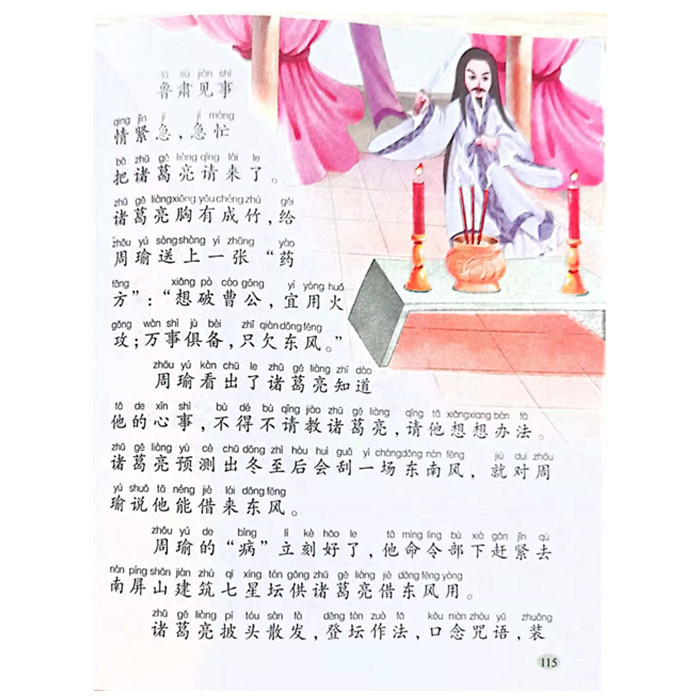 lǔ sù jiàn shì
鲁肃见事
qíng jǐn jí jí máng
情紧急,急忙
bǎ zhū gě liàng qǐng lái le
把诸葛亮请来了。
zhū gě liàng xiōng yǒu chéng zhú gěi
诸葛亮胸有成竹,给
zhōu yú sòng shàng yì zhāng yào
周瑜送上一张“药
fāng xiǎng pò cáo gōng yí yòng huǒ
方”:“想破曹公,宜用火
gōng wàn shì jù bèi zhǐ qiàn dōng fēng
攻;万事俱备,只欠东风。”
zhōu yú kàn chū le zhū gě liàng zhī dào
周瑜看出了诸葛亮知道
tā de xīn shì bù dé bù qǐng jiào zhū gě liàng qǐng tā xiǎng xiang bàn fǎ
他的心事,不得不请教诸葛亮,请他想想办法。
zhū gě liàng yù cè chū dōng zhì hòu huì guā yì cháng dōng nán fēng jiù duì zhōu
诸葛亮预测出冬至后会刮一场东南风,就对周
yú shuō tā néng jiè lái dōng fēng
瑜说他能借来东风。
zhōu yú de bìng lì kè hǎo le tā mìng lìng bù xià gǎn jǐn qù
周瑜的“病”立刻好了,他命令部下赶紧去
nán píng shān jiàn zhù qī xīng tán gōng zhū gě liàng jiè dōng fēng yòng
南屏山建筑七星坛供诸葛亮借东风用。
zhū gě liàng pī tóu sàn fà dēng tán zuò fǎ kǒu niàn zhòu yǔ zhuāng
诸葛亮披头散发,登坛作法,口念咒语,装
115